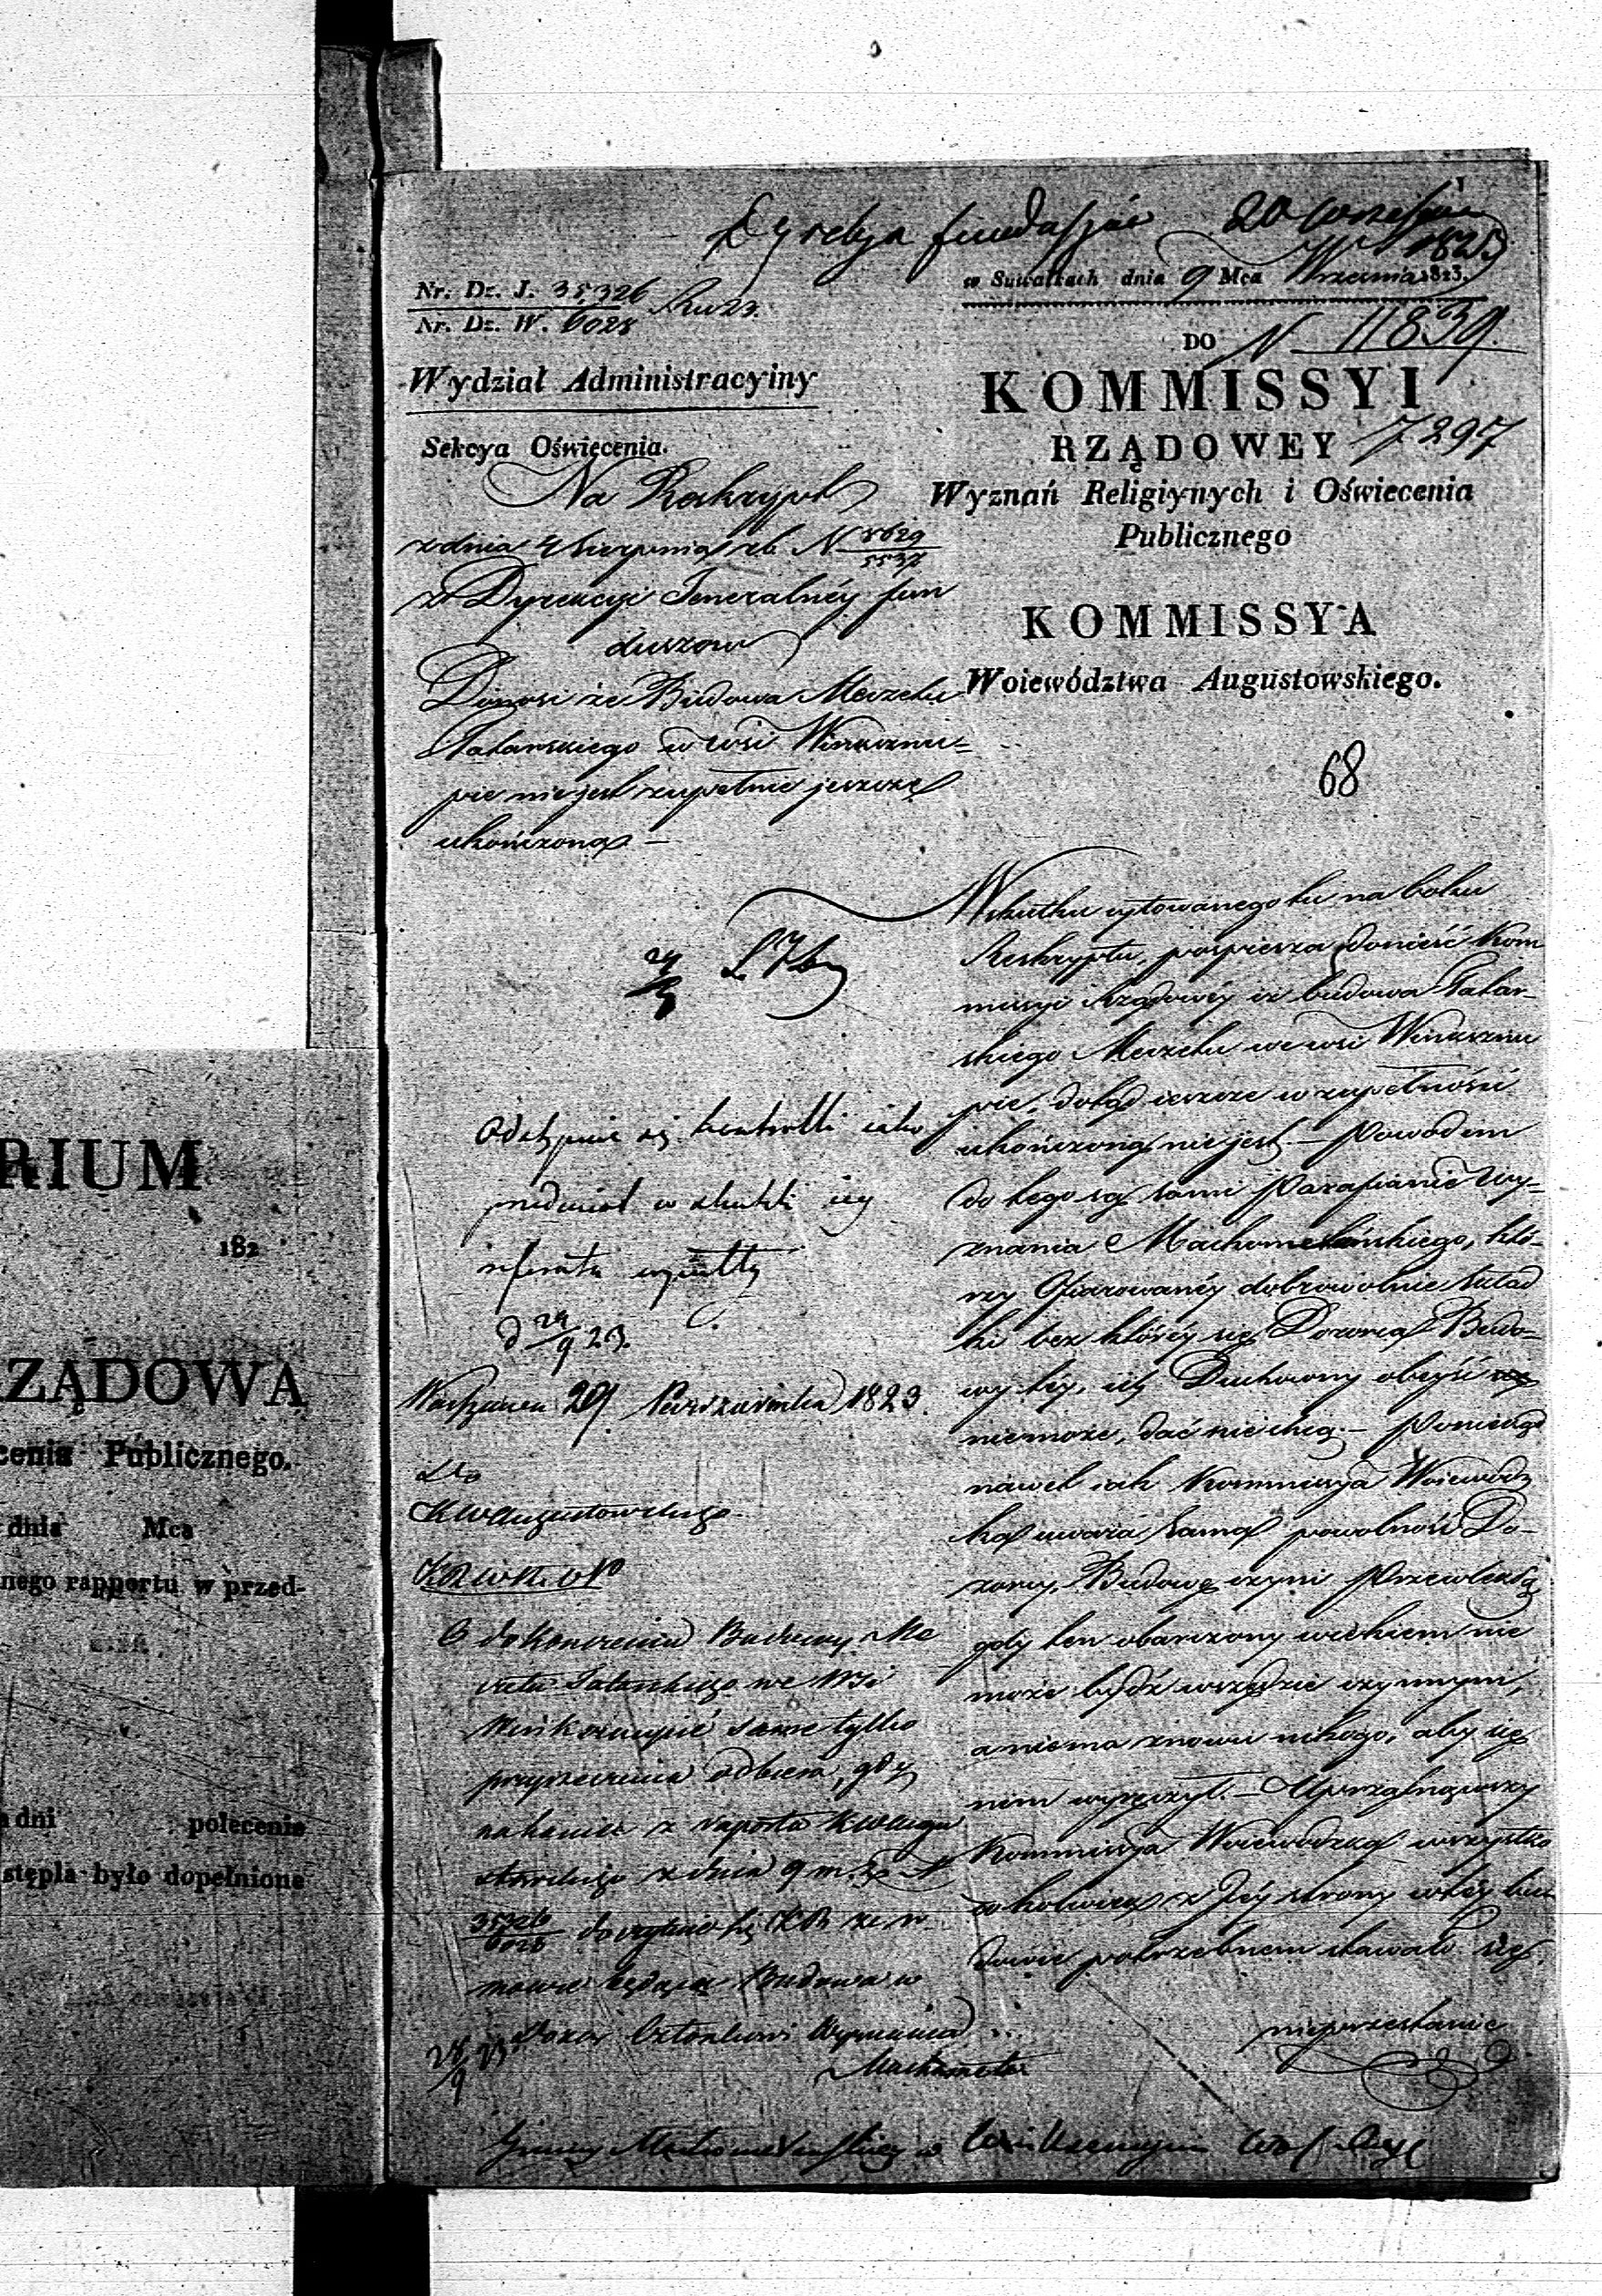 Dyrekcja funduszów 20 Września 1823
w Suwałkach dnia 9 Mca Września 1823.
Nr. Dz. J. 35326
Nr. Dz. W. 6028
DO
N 11839.
Wydział Administracyiny
KOMMISSYI
RZĄDOWEY 7297
Sekcya Oświecenia.
Wyznań Religiynych i Oświecenia
Publicznego
KOMMISSYA
Woiewództwa Augustowskiego.
68
Na Reskrypt
z dnia 4 Sierpnia rb. N 8629/5537
z Dyrekcyi Generalnéy fun
duszow
Donosi że Budowa Meczetu
Tatarskiego w wsi Winksznu=
pie nie jest zupełnie jeszcze
ukończona —
Wskutku cytowanego tu na boku
Reskryptu, pospiesza donieść Kom
missyi Rządowéy iż budowa Tatar-
skiego Meczetu we wsi Winksznu
pie, dotąd ieszcze w zupełności
ukończoną nie jest. — Powodem
do tego są sami Parafianie wy=
znania Machometańskiego, któ-
rzy Ofiarowanéy dobrowolnie Skład
ki bez któréy się Dozorca Budo=
wy téy, Duchowny obejść
niemoże, dać nie chcą. — Ponieważ
nawet iak Kommissya Woiewódz
ka uważa sama powolność Do-
zorcy, Budowę czyni Przewlekłą
gdy ten obarczony wiekiem nie
może bydź wszędzie czynnym,
a niema znowu nikogo, aby się
nim wyręczył. — Uprzątnąwszy
Kommissya Woiewodzka wszystko
cokolwiek z Jéy strony w téy bu
dowie potrzebnem stawało się,
nieprzestanie
24/9
Odstępuie się kontrolli iako
przedmiot w skutki iey
referatu
d 24/9 23.
Warszawa 29 Października 1823.
Do
KWAugustowskiego
O dokonczeniu Budowy Me
czetu Tatarskiego we Wsi
Winksznupie same tylko
przyrzeczenia odbiera, gdy
nakoniec z raportu KWAugu
stowskiego z dnia 9 m. b. N
35326/6028 KR ze w
mowie będąca Budowa w
Wyznania
Machometa
28/9 23
Gminy Machometańskiey w Winksznupiu
RIUM
182
ZĄDOWA
cenia Publicznego.
dnia Mca
nego rapportu w przed-
dni polecenie
stępla było dopełnione